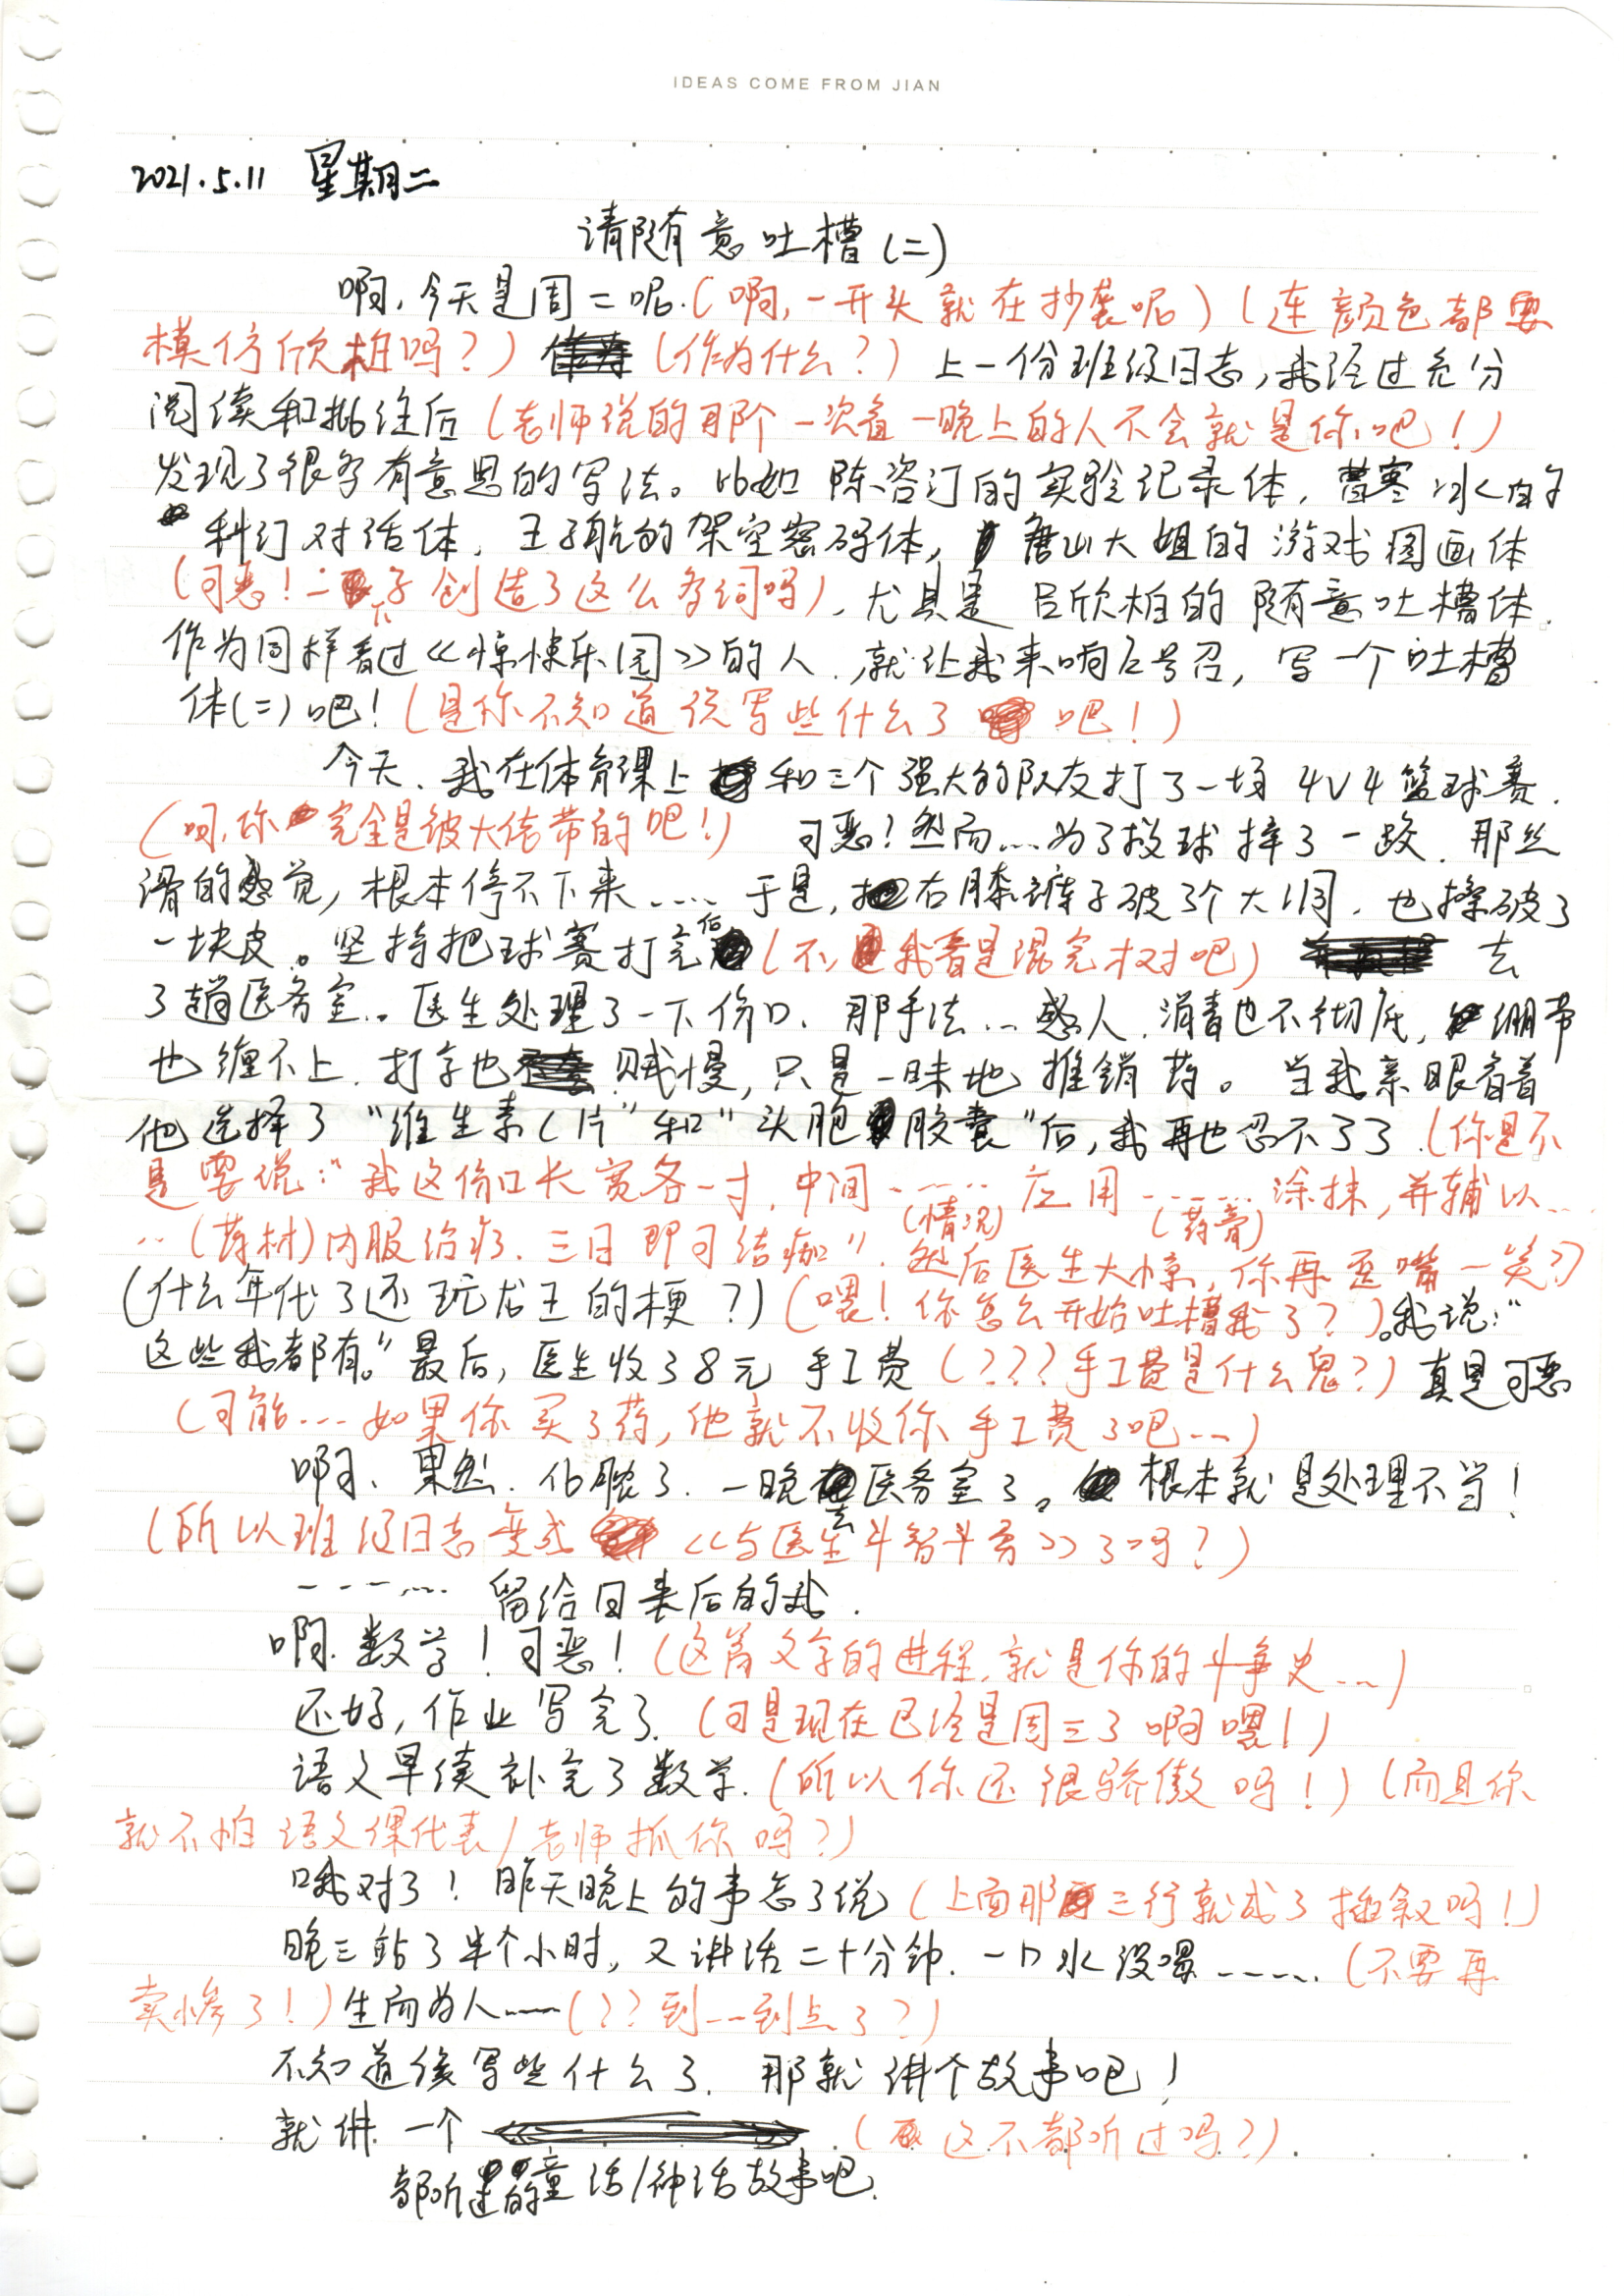 IDEAS COME FROM JIAN
2021.5.11 星期二
请随意吐槽(二)
啊,今天是周二呢.(啊,一开头就在抄袭呢)(连颜色都要
模仿欣桓吗?)(作为什么?)上一份班级日志,我经过充分
阅读和批注后(老师说的那个一次看一晚上的人不会就是你吧!)
发现了很多有意思的写法。比如陈咨汀的实验记录体,曹寒冰的
科幻对话体,王子航的架空密码体,唐山大姐的游戏图画体
(可恶!一下子创造了这么多词吗),尤其是吕欣桓的随意吐槽体.
作为同样看过《惊悚乐园》的人,就让我来响应号召,写一个吐槽
体(二)吧!(是你不知道该写些什么了吧!)
今天,我在体育课上和三个强大的队友打了一场4V4篮球赛.
(呵,你完全是被大佬带的吧!)可恶!然而...为了救球摔了一跤.那丝
滑的感觉,根本停不下来......于是,右膝裤子破了个大洞,也擦破了
一块皮。坚持把球赛打完后(不,我看是混完才对吧)去
了趟医务室。医生处理了一下伤口,那手法...感人,消毒也不彻底,绷带
也缠不上,打字也贼慢,只是一味地推销药。当我亲眼看着
他选择了"维生素C片"和"头孢胶囊"后,我再也忍不了了.(你是不
是要说:"我这伤口长宽各一寸,中间......(情况)应用......(药膏)涂抹,并辅以...
...(药材)内服治疗.三日即可结痂",然后医生大惊,你再歪嘴一笑?)
(什么年代了还玩龙王的梗?)(喂!你怎么开始吐槽我了?)。我说:"
这些我都有。"最后,医生收了8元手工费(???手工费是什么鬼?)真是可恶
(可能...如果你买了药,他就不收你手工费了吧...)
啊,果然.化脓了.一晚去医务室了。根本就是处理不当!
(所以班级日志变成《与医生斗智斗勇》了吗?)
......留给回来后的我.
啊.数学!可恶!(这篇文字的进程,就是你的斗争史...)
还好,作业写完了.(可是现在已经是周三了啊喂!)
语文早读补完了数学.(所以你还很骄傲吗!)(而且你
就不怕语文课代表/老师抓你吗?)
哦对了!昨天晚上的事忘了说(上面那三行就成了插叙吗!)
晚三站了半个小时,又讲话二十分钟.一口水没喝......(不要再
卖惨了!)生而为人......(??到...到点了?)
不知道该写些什么了.那就讲个故事吧!
就讲一个(这不都听过吗?).
都听过的童话/神话故事吧.